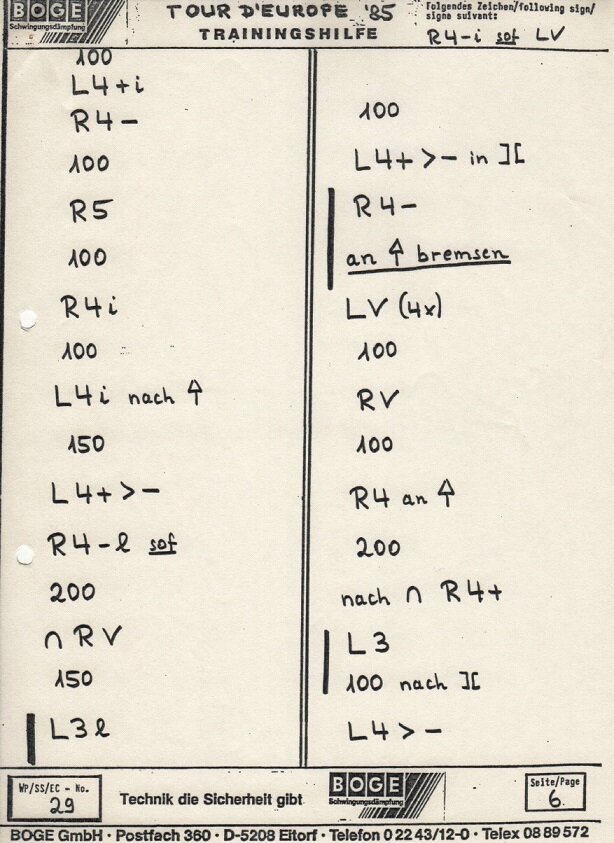 BOGE
Schwingungsdämpfung
TOUR D'EUROPE '85
TRAININGSHILFE
folgendes Zeichen/following sign/
signe suivant:
R4-i sof LV
100
L4+i
R4-
100
R5
100
R4i
100
L4i nach ⇧
150
L4+>-
R4-l sof
200
∩ RV
150
L3l
100
L4+>- in ][
R4-
an ⇧ bremsen
LV (4x)
100
RV
100
R4 an ⇧
200
nach ∩ R4+
L3
100 nach ][
L4>-
WP/SS/EC - No.
29
Technik die Sicherheit gibt
BOGE
Schwingungsdämpfung
Seite/Page
6.
BOGE GmbH · Postfach 360 · D-5208 Eitorf · Telefon 0 22 43/12-0 · Telex 08 89 572